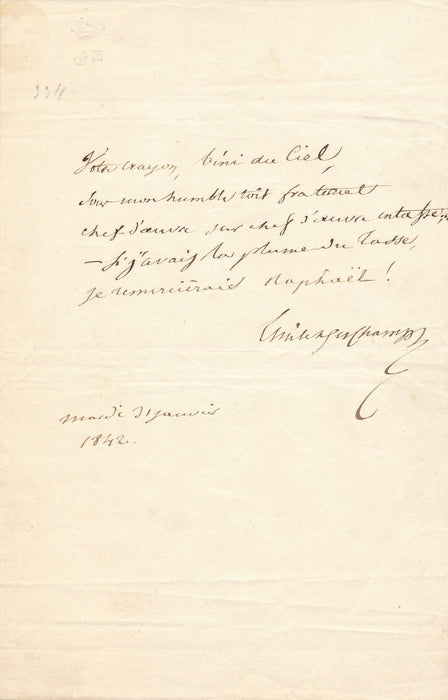 334
Votre crayon, béni du Ciel,
Sous mon humble toit fraternel
chef d'œuvre sur chef d'œuvre entasse;
— Si j'avais la plume du Tasse,
je remercîrais Raphaël !
Emile Deschamps
mardi 31 janvier
1842.